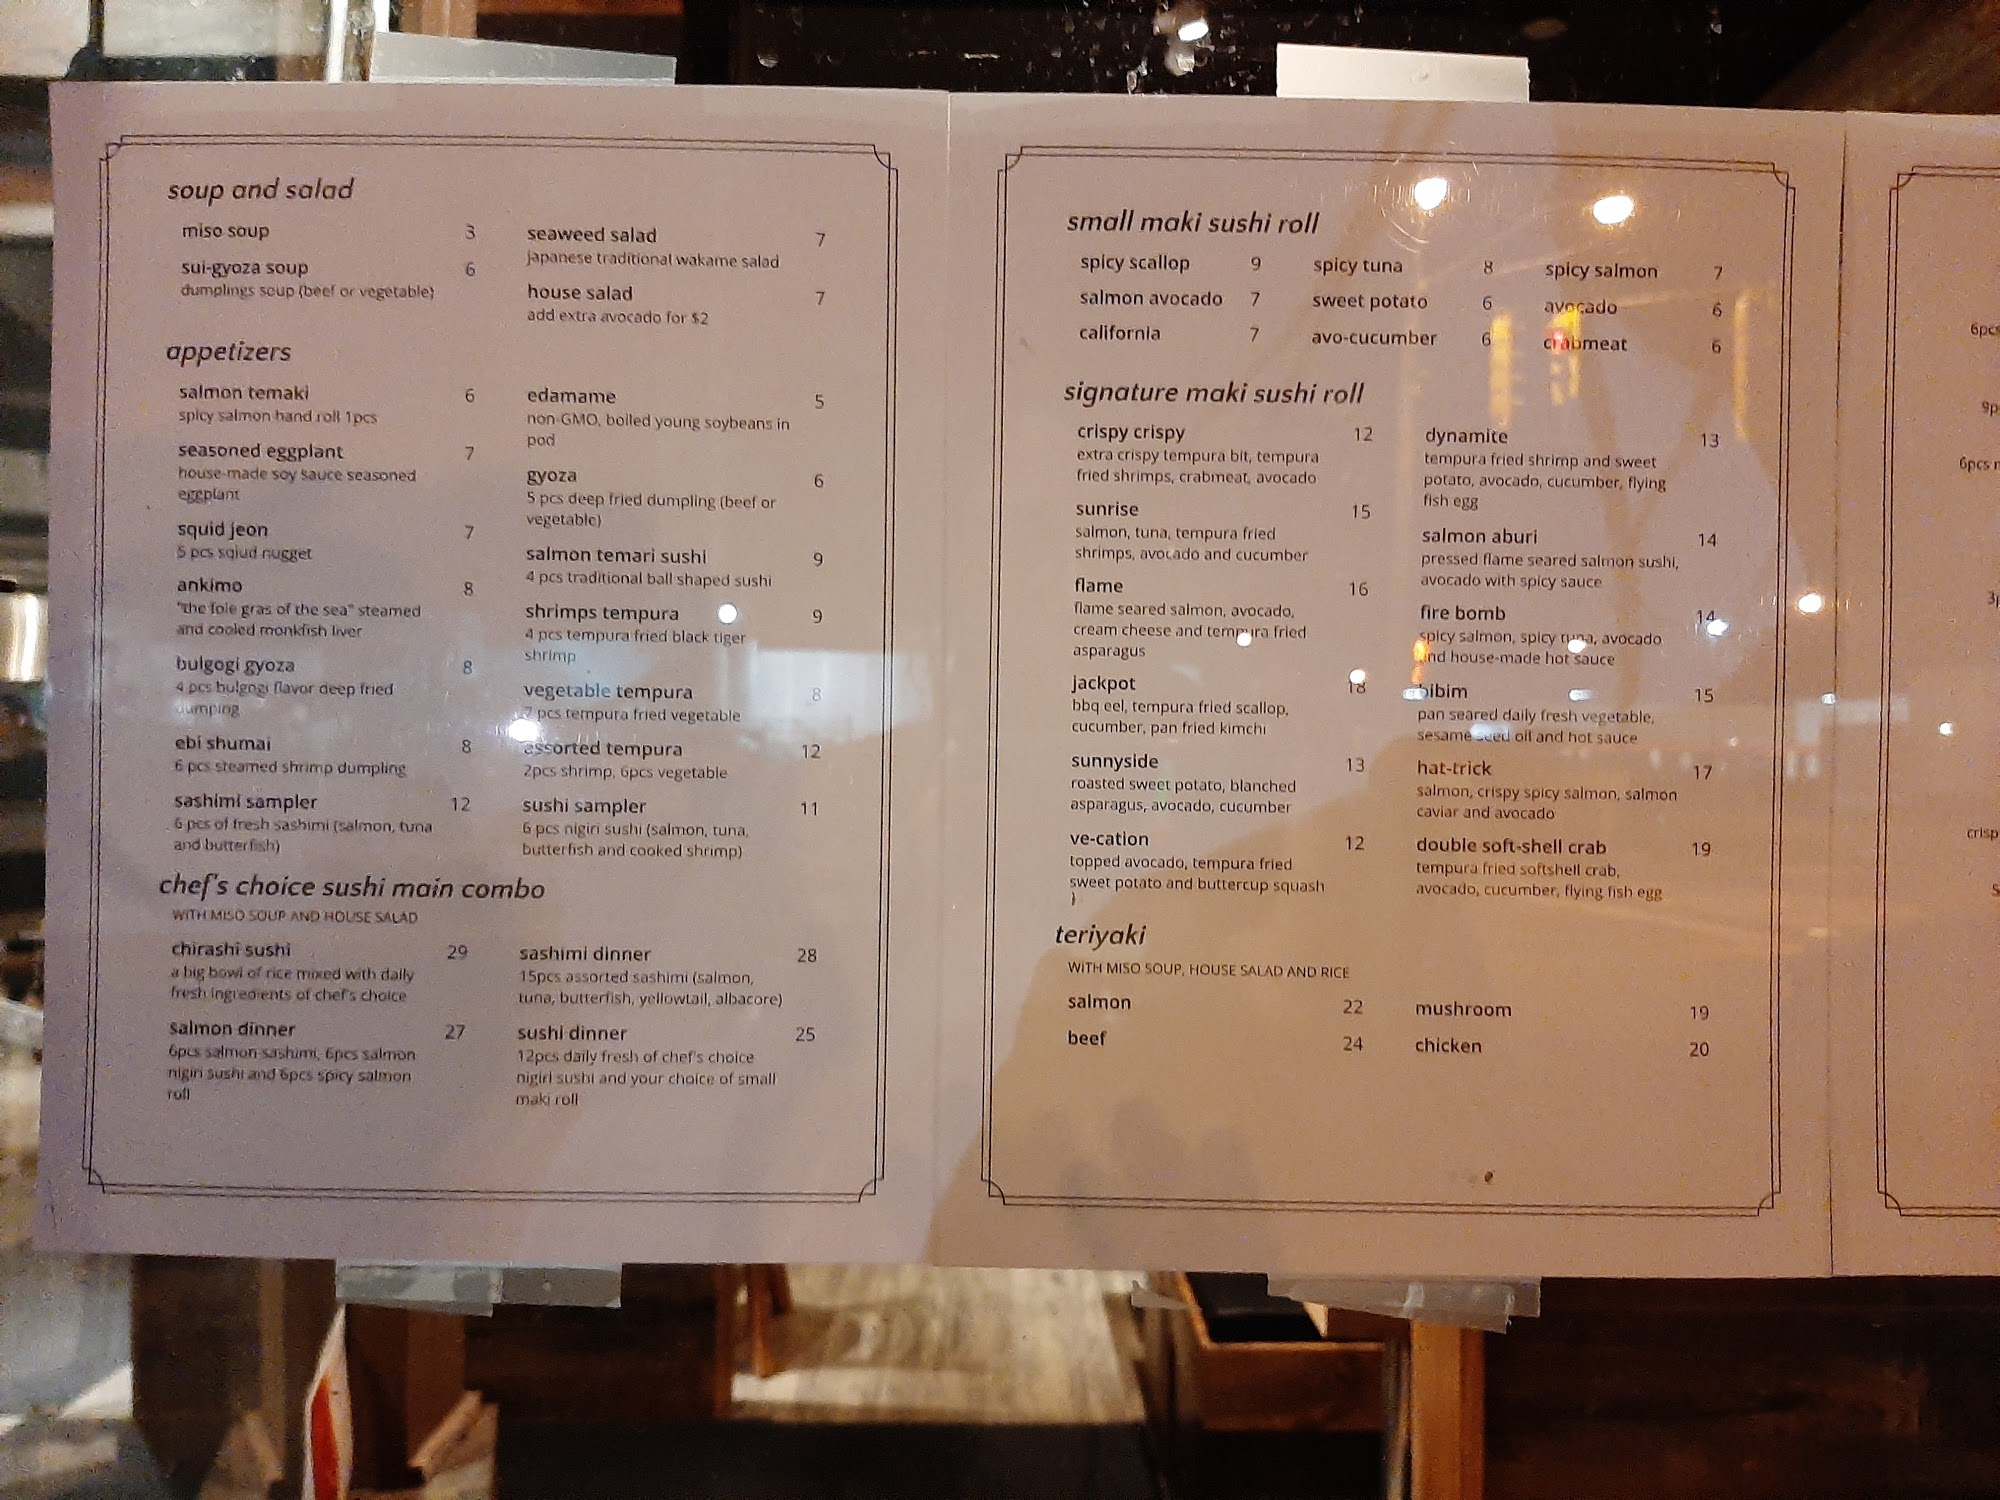 soup and salad
miso soup 3
sui-gyoza soup 6
dumplings soup (beef or vegetable)
seaweed salad 7
japanese traditional wakame salad
house salad 7
add extra avocado for $2
appetizers
salmon temaki 6
spicy salmon hand roll 1pcs
seasoned eggplant 7
house-made soy sauce seasoned
eggplant
squid jeon 7
5 pcs sqiud nugget
ankimo 8
"the foie gras of the sea" steamed
and cooled monkfish liver
bulgogi gyoza 8
4 pcs bulgogi flavor deep fried
dumping
ebi shumai 8
6 pcs steamed shrimp dumpling
sashimi sampler 12
6 pcs of fresh sashimi (salmon, tuna
and butterfish)
edamame 5
non-GMO, boiled young soybeans in
pod
gyoza 6
5 pcs deep fried dumpling (beef or
vegetable)
salmon temari sushi 9
4 pcs traditional ball shaped sushi
shrimps tempura 9
4 pcs tempura fried black tiger
shrimp
vegetable tempura 8
7 pcs tempura fried vegetable
assorted tempura 12
2pcs shrimp, 6pcs vegetable
sushi sampler 11
6 pcs nigiri sushi (salmon, tuna,
butterfish and cooked shrimp)
chef's choice sushi main combo
WITH MISO SOUP AND HOUSE SALAD
chirashi sushi 29
a big bowl of rice mixed with daily
fresh ingredients of chef's choice
salmon dinner 27
6pcs salmon sashimi, 6pcs salmon
nigiri sushi and 6pcs spicy salmon
roll
sashimi dinner 28
15pcs assorted sashimi (salmon,
tuna, butterfish, yellowtail, albacore)
sushi dinner 25
12pcs daily fresh of chef's choice
nigiri sushi and your choice of small
maki roll
small maki sushi roll
spicy scallop 9 spicy tuna 8 spicy salmon 7
salmon avocado 7 sweet potato 6 avocado 6
california 7 avo-cucumber 6 crabmeat 6
signature maki sushi roll
crispy crispy 12
extra crispy tempura bit, tempura
fried shrimps, crabmeat, avocado
sunrise 15
salmon, tuna, tempura fried
shrimps, avocado and cucumber
flame 16
flame seared salmon, avocado,
cream cheese and tempura fried
asparagus
jackpot 18
bbq eel, tempura fried scallop,
cucumber, pan fried kimchi
sunnyside 13
roasted sweet potato, blanched
asparagus, avocado, cucumber
ve-cation 12
topped avocado, tempura fried
sweet potato and buttercup squash
)
dynamite 13
tempura fried shrimp and sweet
potato, avocado, cucumber, flying
fish egg
salmon aburi 14
pressed flame seared salmon sushi,
avocado with spicy sauce
fire bomb 14
spicy salmon, spicy tuna, avocado
and house-made hot sauce
bibim 15
pan seared daily fresh vegetable,
sesame seed oil and hot sauce
hat-trick 17
salmon, crispy spicy salmon, salmon
caviar and avocado
double soft-shell crab 19
tempura fried softshell crab,
avocado, cucumber, flying fish egg
teriyaki
WITH MISO SOUP, HOUSE SALAD AND RICE
salmon 22
beef 24
mushroom 19
chicken 20
6pcs
9p
6pcs
3p
crisp